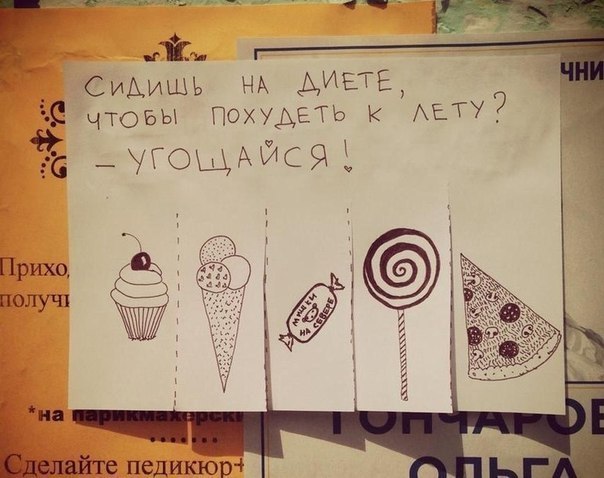 СИДИШЬ НА ДИЕТЕ,
ЧТОБЫ ПОХУДЕТЬ К ЛЕТУ?
– УГОЩАЙСЯ!
МИШКИ
НА СЕВЕРЕ
Прихо
получи
*на парикмахерски
Сделайте педикюр+
ЧНИ
ГОНЧАРОВ
ОЛЬГА